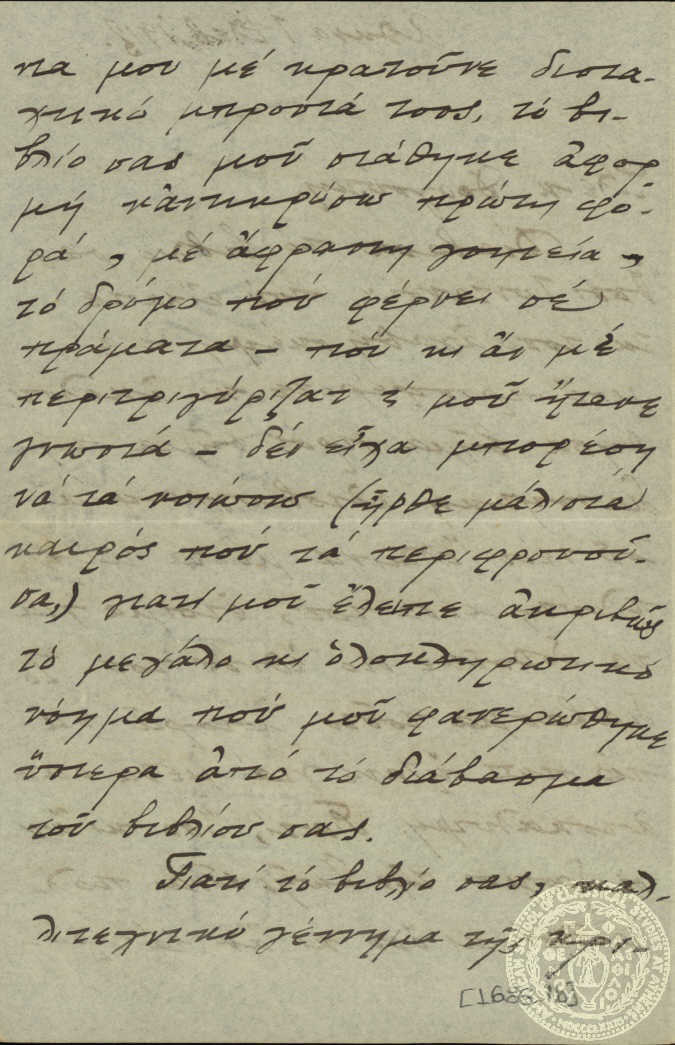 να μου μέ κρατοῦνε διστα-
χτικό μπροστά τους, τό βι-
βλίο σας μοῦ στάθηκε ἀφορ
μή ν' ἀντικρύσω πρώτη φο-
ρά, μέ ἄφραστη γοητεία,
τό δρόμο πού φέρνει σέ
πράματα – πού κι ἄν μέ
περιτριγύριζαν κι μοῦ ἤτανε
γνωστά – δέν εἶχα μπορέση
νά τά νοιώσω (ἦρθε μάλιστα
καιρός πού τά περιφρονοῦ-
σα,) γιατί μοῦ ἔλειπε ἀκριβῶς
τό μεγάλο κι ὁλοκληρωτικό
νόημα πού μοῦ φανερώθηκε
ὕστερα ἀπό τό διάβασμα
τοῦ βιβλίου σας.
Γιατί τό βιβλίο σας, καλ-
λιτεχνικό γέννημα τῆς